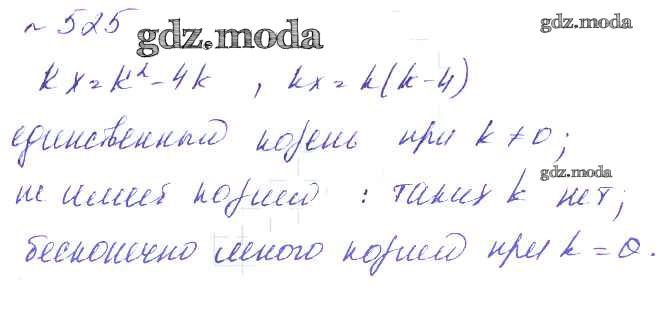 № 525
gdz.moda
gdz.moda
kx = k² - 4k , kx = k(k-4)
единственный корень при k ≠ 0;
gdz.moda
не имеет корней : таких k нет;
бесконечно много корней при k = 0.